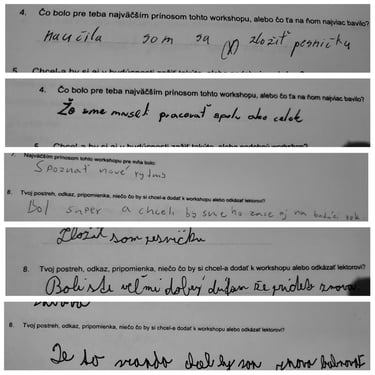 4. Čo bolo pre teba najväčším prínosom tohto workshopu, alebo čo ťa na ňom najviac bavilo?
naučila som sa zložiť pesničku
4. Čo bolo pre teba najväčším prínosom tohto workshopu, alebo čo ťa na ňom najviac bavilo?
Že sme museli pracovať spolu ako celok
7. Najväčším prínosom tohto workshopu pre mňa bolo:
Spoznať nové rytmy
8. Tvoj postreh, odkaz, pripomienka, niečo čo by si chcel-a dodať k workshopu alebo odkázať lektorovi?
Bol super a chceli by sme ho zase aj na budúci rok
Zložil som pesničku
8. Tvoj postreh, odkaz, pripomienka, niečo čo by si chcel-a dodať k workshopu alebo odkázať lektorovi?
Boli ste veľmi dobrý dúfam že prídete znova
8. Tvoj postreh, odkaz, pripomienka, niečo čo by si chcel-a dodať k workshopu alebo odkázať lektorovi?
Je to dal by som znova